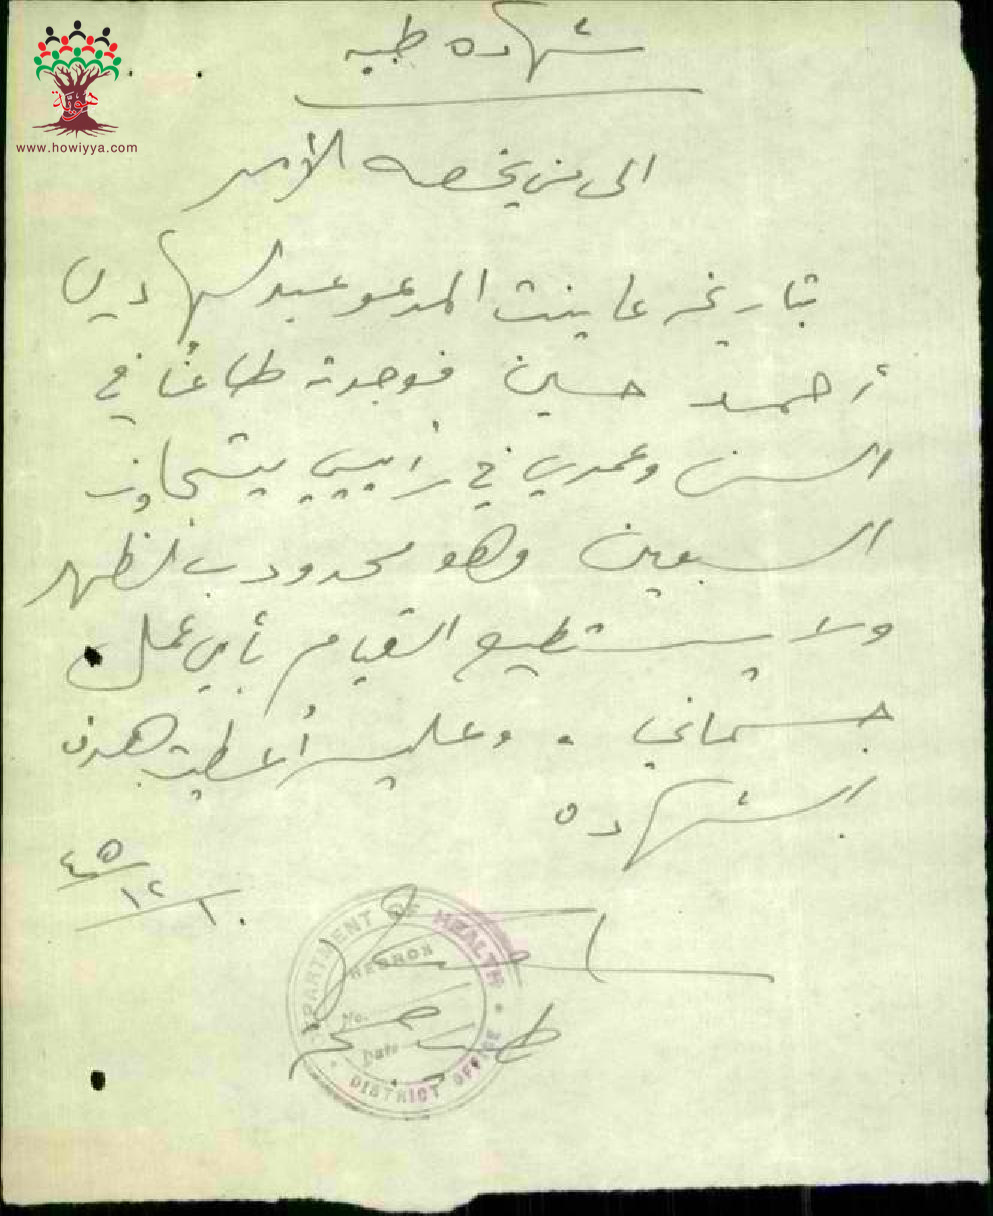 شهاده طبيه
هوية
www.howiyya.com
الى من يخصه الأمر
بتاريخه عاينت المدعو عبد الهادي
أحمد حسين فوجدته طاعنًا في
السن وعمره في رأيي يتجاوز
السبعين وهو محدودب الظهر
ولا يستطيع القيام بأي عمل
جسماني . وعليه أُعطيت هذه
الشهاده
١٠/١٢/٤٥
DEPARTMENT OF HEALTH
HEBRON
No.
Date
DISTRICT OFFICE
طبيب صحة